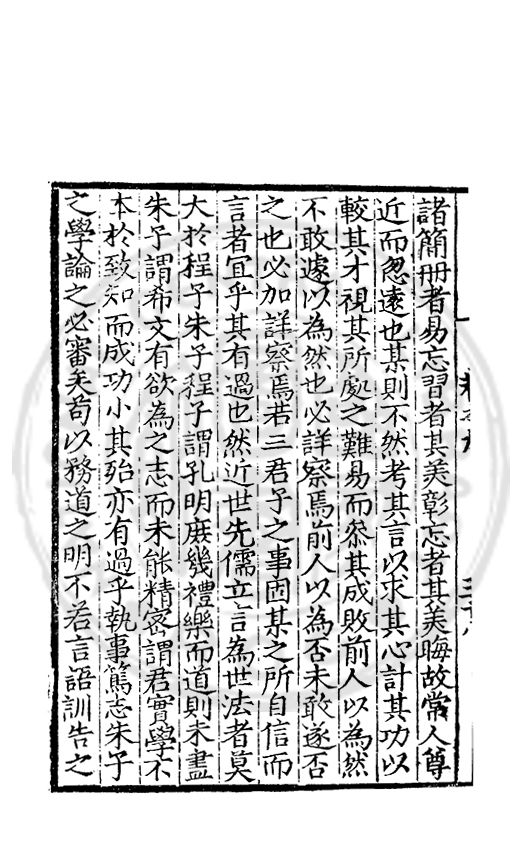 諸簡冊者易忘習者其美彰忘者其美晦故常人尊
近而忽遠也某則不然考其言以求其心計其功以
較其才視其所處之難易而叅其成敗前人以為然
不敢遽以為然也必詳察焉前人以為否未敢遂否
之也必加詳察焉若三君子之事因某之所自信而
言者宜乎其有過也然近世先儒立言為世法者莫
大於程子朱子程子謂孔明庶幾禮樂而道則未盡
朱子謂希文有欲為之志而未能精密謂君實學不
本於致知而成功小其殆亦有過乎執事篤志朱子
之學論之必審矣苟以務道之明不若言語訓告之